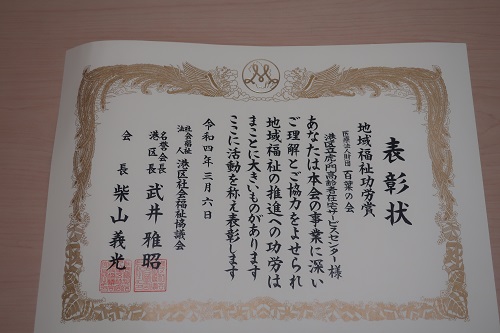 表彰状
地域福祉功労賞
医療法人財団 百葉の会
港区立虎の門高齢者在宅サービスセンター様
あなたは本会の事業に深い
ご理解とご協力をよせられ
地域福祉の推進への功労は
まことに大きいものがあります
ここに活動を称え表彰します
令和四年三月六日
社会福祉法人 港区社会福祉協議会
名誉会長
港区長 武井雅昭
会長 柴山義光